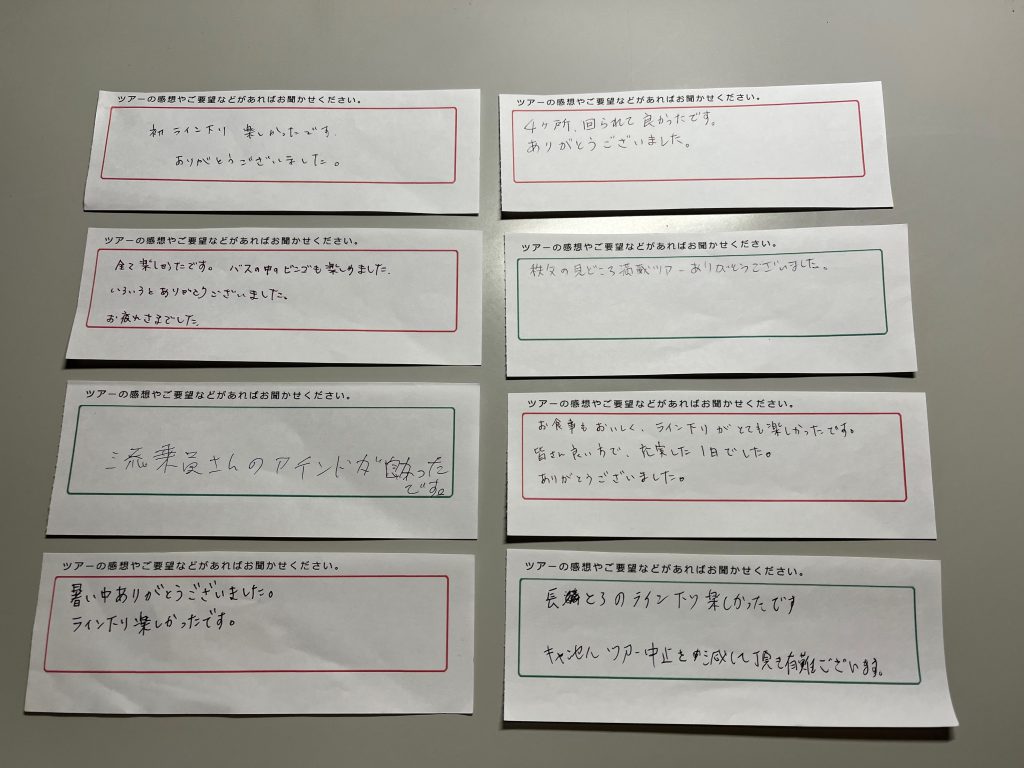 ツアーの感想やご要望などがあればお聞かせください。
初ライン下り 楽しかったです.
ありがとうございました。
ツアーの感想やご要望などがあればお聞かせください。
4ヶ所、回られて良かったです。
ありがとうございました。
ツアーの感想やご要望などがあればお聞かせください。
全て楽しかったです。 バスの中のビンゴも楽しめました.
いろいろとありがとうございました。
お疲れさまでした.
ツアーの感想やご要望などがあればお聞かせください。
秩父の見どころ満載ツアーありがとうございました。
ツアーの感想やご要望などがあればお聞かせください。
乗員さんの
です。
ツアーの感想やご要望などがあればお聞かせください。
お食事もおいしく、ライン下りがとても楽しかったです。
皆さん良い方で、充実した1日でした。
ありがとうございました。
ツアーの感想やご要望などがあればお聞かせください。
暑い中ありがとうございました。
ライン下り楽しかったです。
ツアーの感想やご要望などがあればお聞かせください。
長とろのライン下り楽しかったです
キャンセルツアー中止を減して頂き有難ございます。